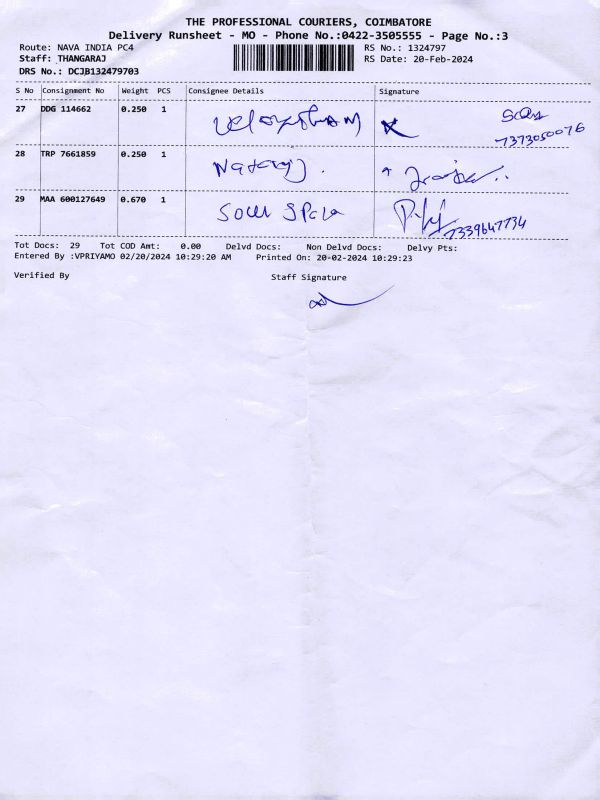 THE PROFESSIONAL COURIERS, COIMBATORE
Delivery Runsheet - MO - Phone No.:0422-3505555 - Page No.:3
Route: NAVA INDIA PC4 RS No.: 1324797
Staff: THANGARAJ RS Date: 20-Feb-2024
DRS No.: DCJB132479703
S No Consignment No Weight PCS Consignee Details Signature
27 DDG 114662 0.250 1
7373050076
28 TRP 7661859 0.250 1 Nataraj
29 MAA 600127649 0.670 1 7339647734
Tot Docs: 29 Tot COD Amt: 0.00 Delvd Docs: Non Delvd Docs: Delvy Pts:
Entered By :VPRIYAMO 02/20/2024 10:29:20 AM Printed On: 20-02-2024 10:29:23
Verified By Staff Signature